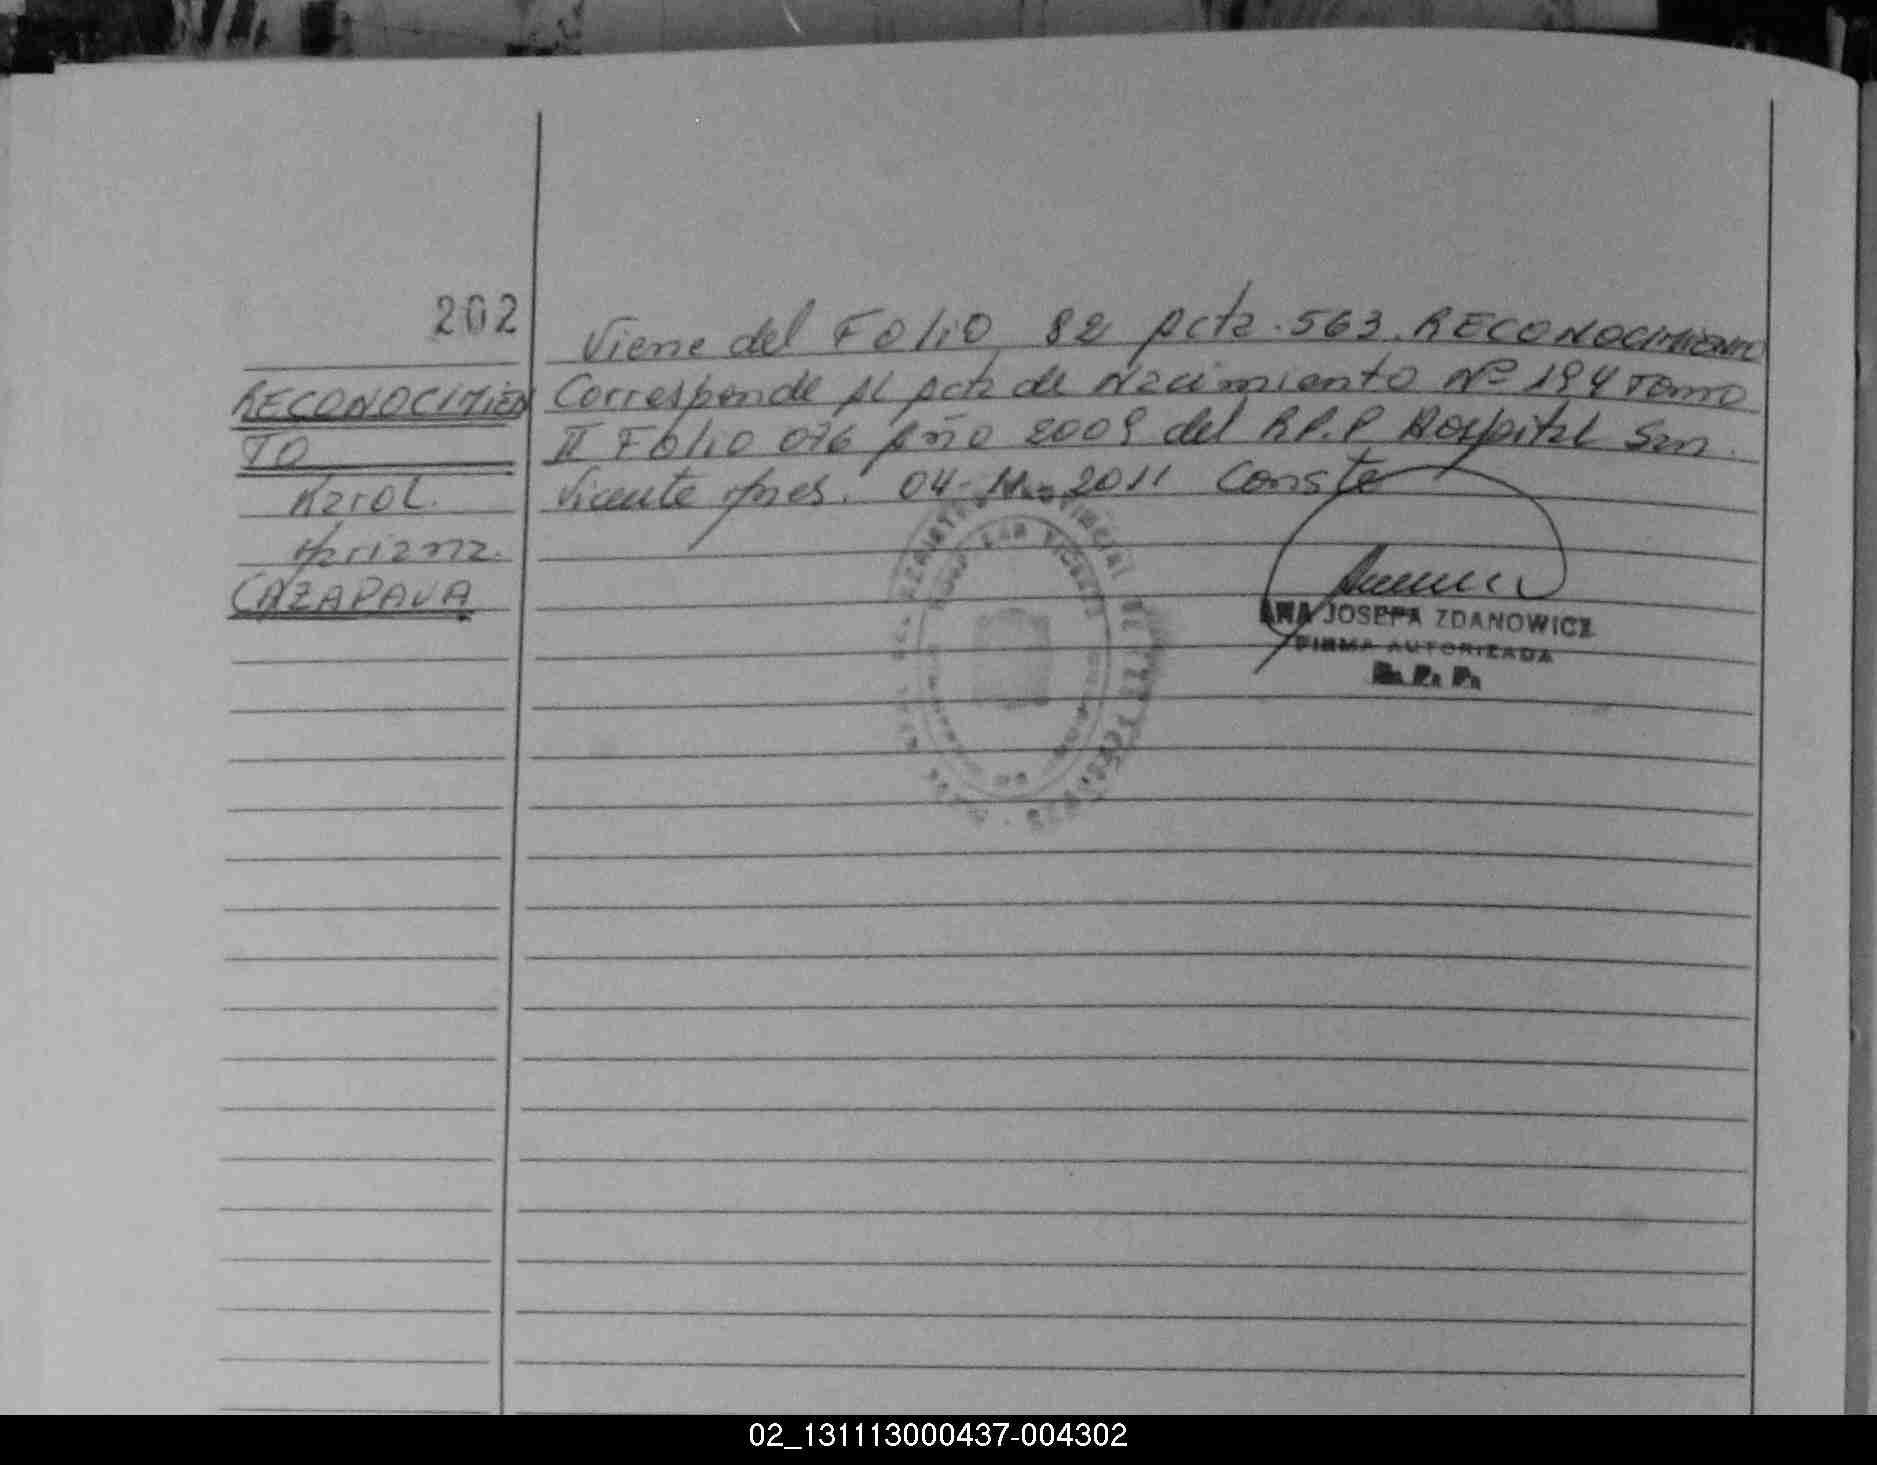 202
Viene del Folio 82 Acta. 563. RECONOCIMIENTO
RECONOCIMIEN
Corresponde al Acta de Nacimiento Nº 194 Tomo
TO
II Folio 076 Año 2009 del R.P.P Hospital San.
Karol.
Vicente Mnes. 04-2011 Conste
Mariana.
CAZAPAVA
HOSPITAL SAN VICENTE
ANA JOSEFA ZDANOWICZ
FIRMA AUTORIZADA
R. P. P.
02_131113000437-004302